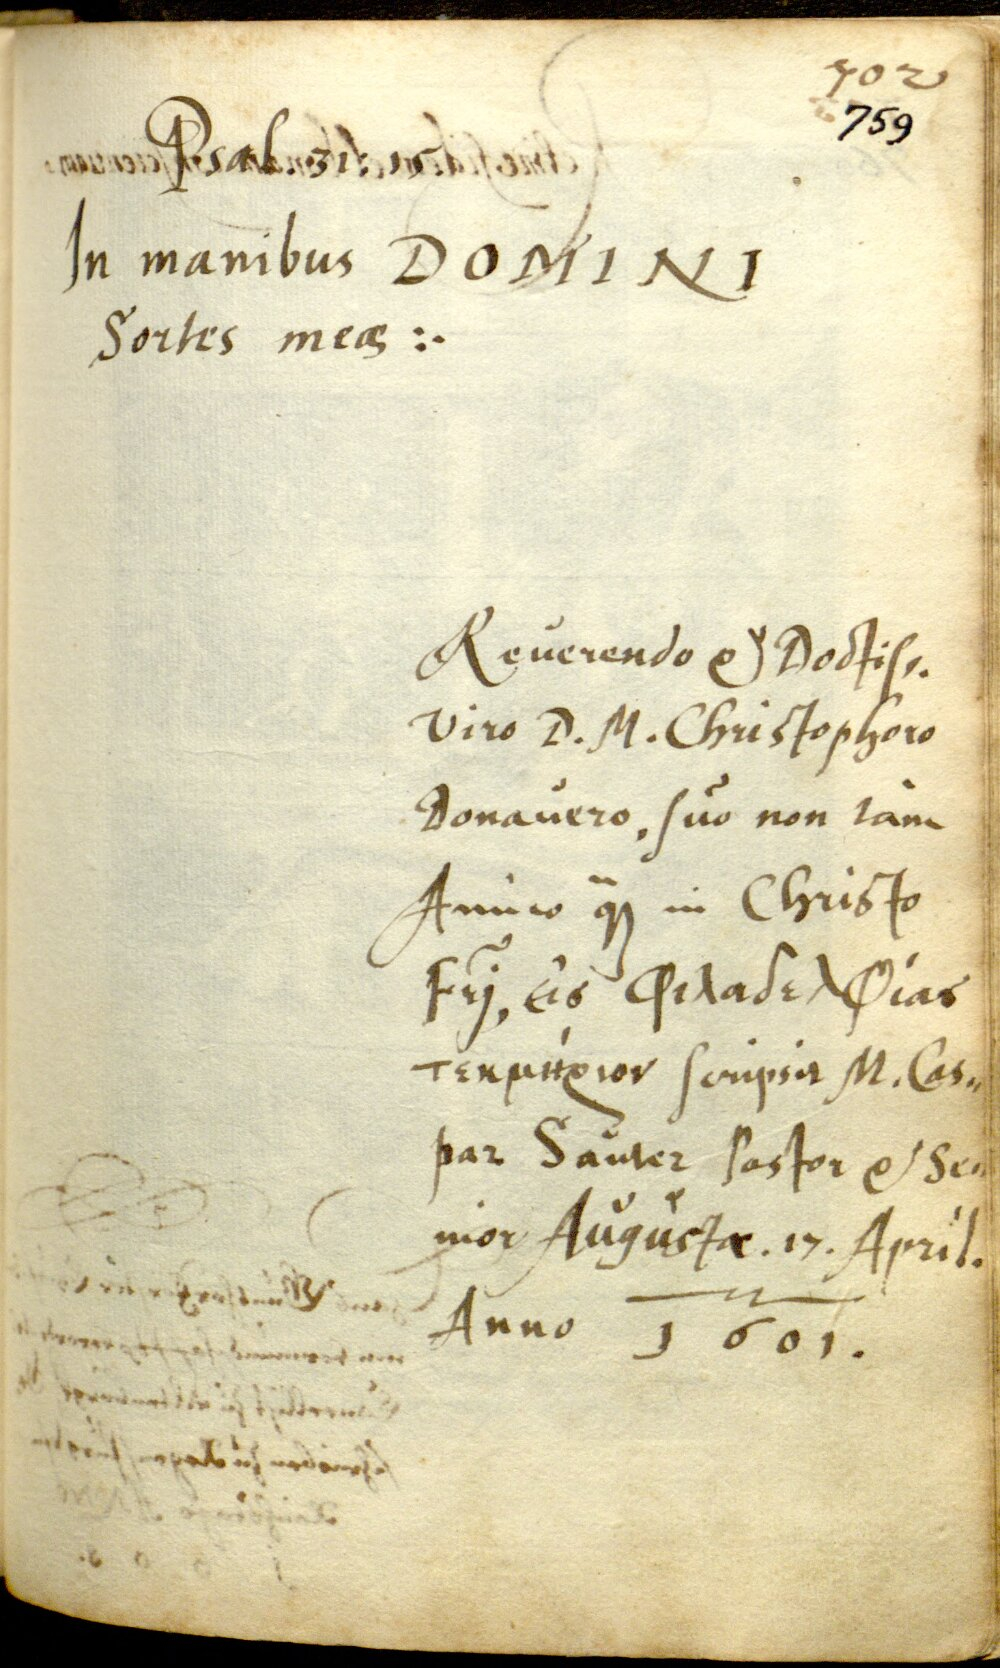 702
759
Psal. 31. 15.
In manibus DOMINI
Sortes meæ :.
Reuerendo & Doctiss.
Viro D. M. Christophoro
Donauero, suo non tàm
Amico q̃ȝ in Christo
Frĩ, εἰς Φιλαδελφίας
τεκμήριον scripsit M. Cas„
par Sauter Pastor & Se„
nior Augustæ. 17. April.
Anno 1601.